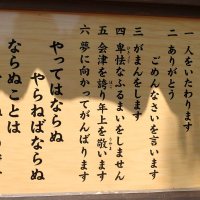 一 人をいたわります
二 ありがとう
ごめんなさいを言います
三 がまんをします
四 卑怯なふるまいをしません
五 会津を誇り年上を敬います
六 夢に向かってがんばります
やってはならぬ
やらねばならぬ
ならぬことは